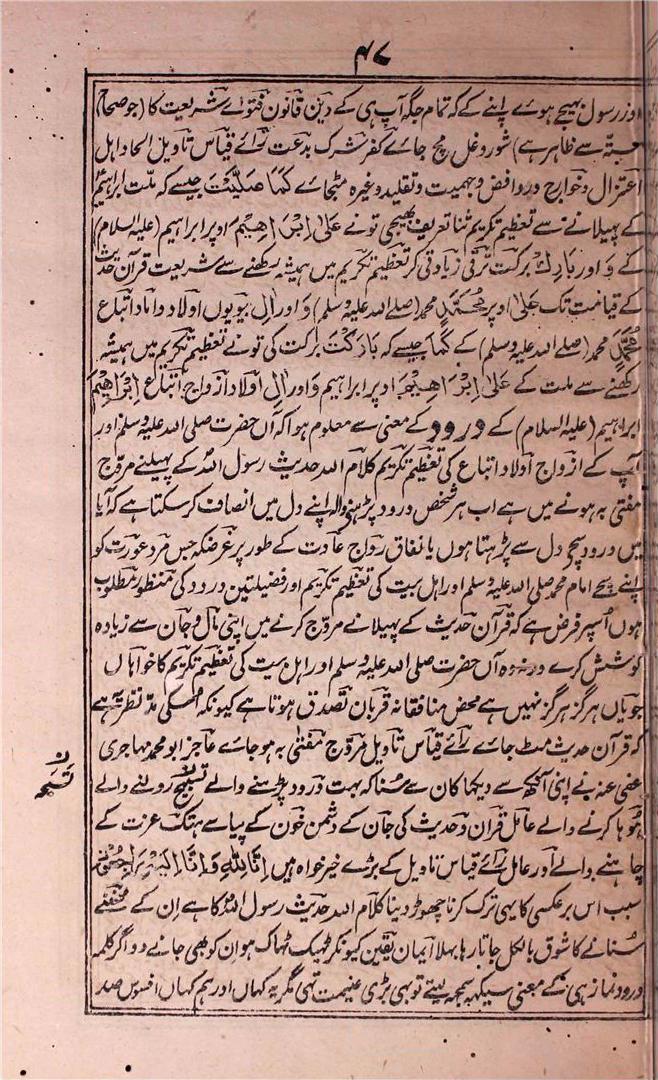 ۴۷
اور رسول بھیجے ہوے اپنے کے کہ تمام جگہ آپ ہی کے دین قانون فتوے شریعت کا (جو صحاح
ستہ سے ظاہر ہے) شور و غل مچ جاے کفر شرک بدعت راے قیاس تاویل الحاد اہل
اعتزال و خوارج و روافض و جہمیت و تقلید وغیرہ مٹجاے کَمَا صَلَّیْتَ جیسے کہ ملت ابراہیم
کے پہیلانے سے تعظیم تکریم ثنا تعریف بھیجی تونے عَلٰی اِبْرَاهِیْمَ اوپر ابراہیم (علیہ السلام)
کے وَ اور بَارِكْ برکت ترقی زیادتی کر تعظیم تکریم میں ہمیشہ رکھنے سے شریعت قرآن حدیث
کے قیامت تک عَلٰی اوپر مُحَمَّدٍ محمد (صلے اللہ علیہ وسلم) وَ اور اٰلِ بیویوں اولاد داماد اتباع
مُحَمَّدٍ محمد (صلے اللہ علیہ وسلم) کے کَمَا جیسے کہ بَارَکْتَ برکت کی تونے تعظیم تکریم میں ہمیشہ
رکھنے سے ملت کے عَلٰی اِبْرَاهِیْمَ اوپر ابراہیم وَ اور اٰلِ اولاد ازواج اتباع اِبْرَاهِیْمَ
ابراہیم (علیہ السلام) کے درود کے معنی سے معلوم ہوا کہ آں حضرت صلی اللہ علیہ وسلم اور
آپ کے ازواج اولاد اتباع کی تعظیم تکریم کلام اللہ حدیث رسول اللہ کے پہیلنے مروّج
مفتی بہ ہونے میں ہے اب ہر شخص درود پڑہنے والہ اپنے دل میں انصاف کر سکتا ہے کہ آیا
میں درود سچی دل سے پڑہتا ہوں یا نفاق رواج عادت کے طور پر غرضکہ جس مرد عورت کو
اپنے سچے امام محمد صلی اللہ علیہ وسلم اور اہل بیت کی تعظیم تکریم اور فضیلتیں درود کی منظور مطلوب
ہوں اُسپر فرض ہے کہ قرآن حدیث کے پہیلانے مروّج کرنے میں اپنی مال و جان سے زیادہ
کوشش کرے ورنہ وہ آں حضرت صلی اللہ علیہ وسلم اور اہل بیت کی تعظیم تکریم کا خواہاں
جویاں ہرگز ہرگز نہیں ہے محض منافقانہ قربان تصدق ہوتا ہے کیونکہ اُسکی مدّ نظر یہ ہے
کہ قرآن حدیث مٹ جاے راے قیاس تاویل مروّج مفتیٰ بہ ہو جاے عاجز ابو محمد مہاجری
عفی عنہ نے اپنی آنکھ سے دیکھا کان سے سنا کہ بہت درود پڑہنے والے تسبیح رولنے والے
ہُو ہا کرنے والے عامل قرآن و حدیث کی جان کے دشمن خون کے پیاسے ہتک عزت کے
چاہنے والے اور عامل راے قیاس تاویل کے بڑے خیر خواہ ہیں اِنَّا لِلّٰهِ وَاِنَّا اِلَیْهِ رَاجِعُوْنَ
سبب اس برعکسی کا یہی ترک کرنا چھوڑ دینا کلام اللہ حدیث رسول اللہ کا ہے اِن کے سننے
سُنانے کا شوق بالکل جاتا رہا بہلا ایمان یقین کیونکر ٹہیک ٹہاک ہو اِن کو بھی جانے دو اگر کلمہ
درود نماز ہی کے معنی سیکہہ سمجہہ لیتے تو بہی بڑی غنیمت تہی مگر یہ کہاں اور ہم کہاں افسوس صد